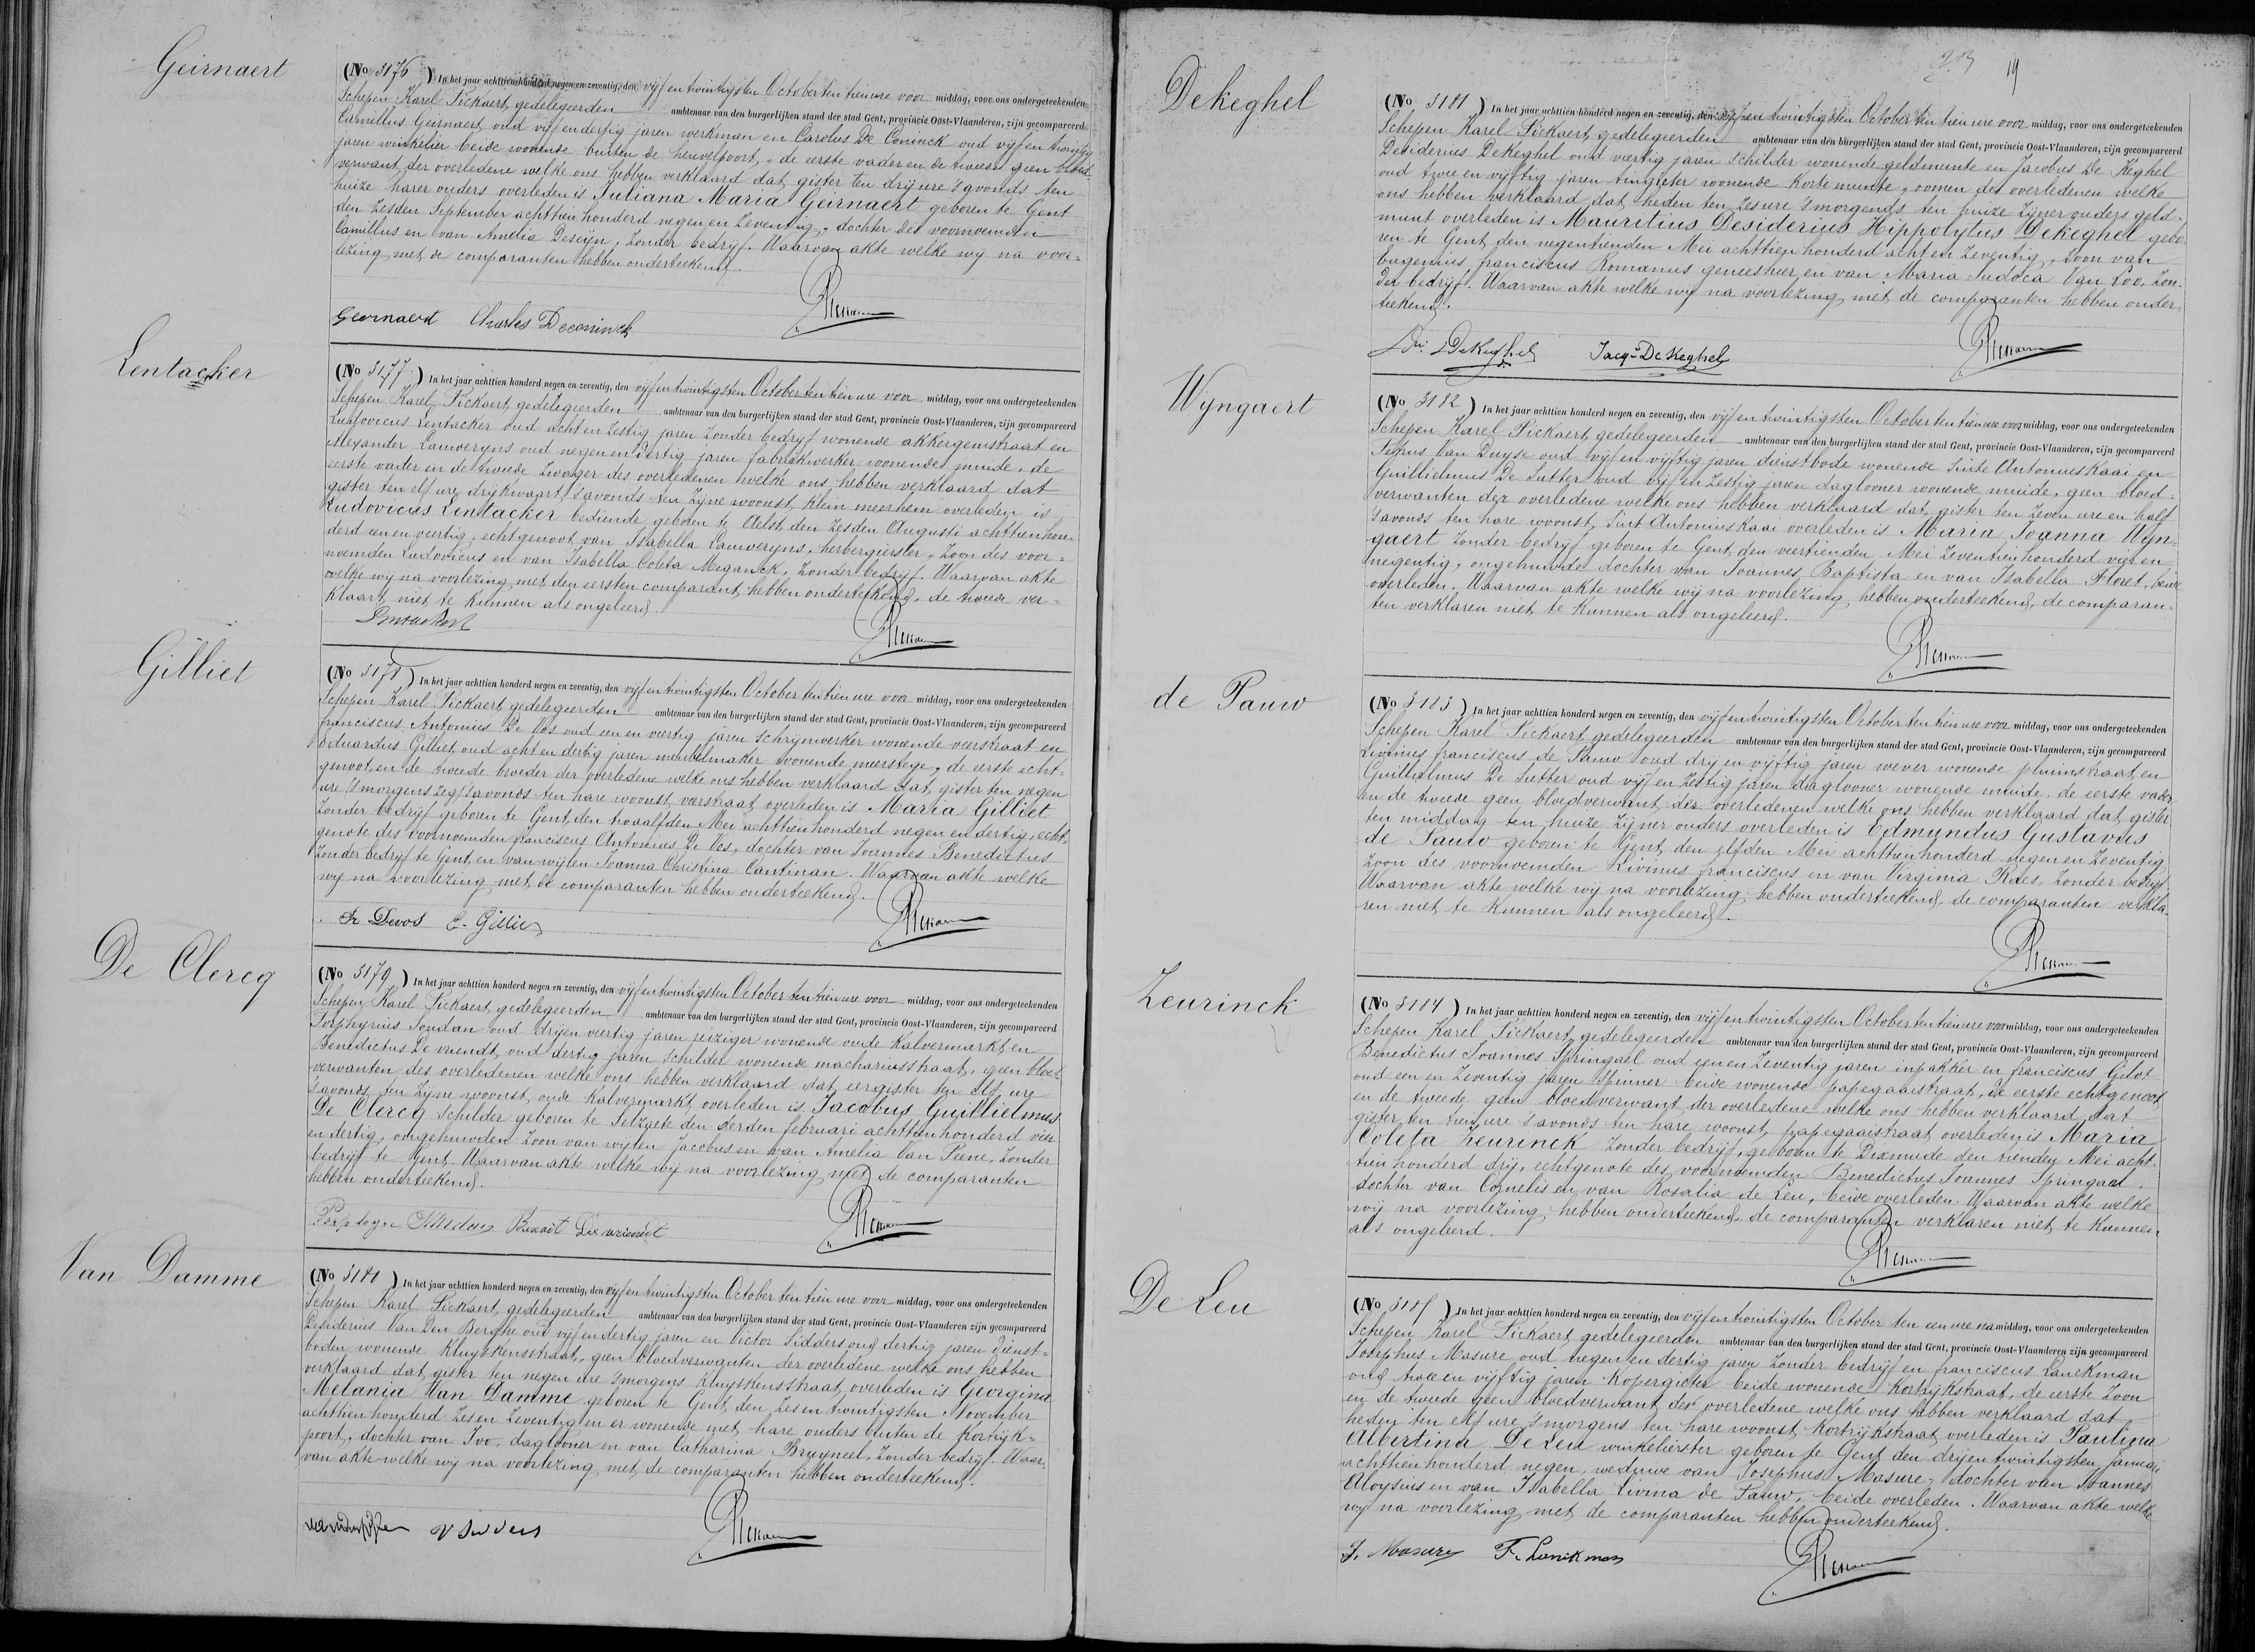 Geirnaert
(No 3176) In het jaar achttien honderd negen en zeventig, den vijf en twintigsten October ten tien ure voor middag, voor ons ondergeteekenden
Schepen Karel Pickaert, gedelegeerden ambtenaar van den burgerlijken stand der stad Gent, provincie Oost-Vlaanderen, zijn gecompareerd
Camillus Geirnaert, oud vijf en dertig jaren werkman en Carolus De Coninck oud vijf en twintig
jaren winkelier beide wonende buiten de heuvelpoort, de eerste vader en de tweede geen bloed=
verwant der overledene welke ons hebben verklaard dat gister ten drij ure 's avonds ten
huize harer ouders overleden is Juliana Maria Geirnaert geboren te Gent
den zesden September achttien honderd negen en zeventig, dochter des voornoemden
Camillus en van Amelia Deseyn, zonder bedrijf. Waarvan akte welke wij na voor=
lezing met de comparanten hebben onderteekend.
Geernaert Charles Deconinck
Lentacker
(No 3177) In het jaar achttien honderd negen en zeventig, den vijf en twintigsten October ten tien ure voor middag, voor ons ondergeteekenden
Schepen Karel Pickaert, gedelegeerden ambtenaar van den burgerlijken stand der stad Gent, provincie Oost-Vlaanderen, zijn gecompareerd
Ludovicus Lentacker oud acht en zestig jaren zonder bedrijf wonende akkergemstraat en
Alexander Lauweryns oud negen en dertig jaren fabriekwerker wonende muide, de
eerste vader en de tweede zwager des overledenen welke ons hebben verklaard dat
gister ten elf ure drijkwaart 's avonds ten zijne woonst, klein meerhem overleden is
Ludovicus Lentacker bediende geboren te Aelst den zesden Augusti achttien hon=
derd een en veertig, echtgenoot van Isabella Lauweryns, herbergierster, zoon des voor=
noemden Ludovicus en van Isabella Coleta Meganck, zonder bedrijf. Waarvan akte
welke wij na voorlezing met den eersten comparant hebben onderteekend, de tweede ver=
klaart niet te kunnen als ongeleerd.
Gilliet
(No 3178) In het jaar achttien honderd negen en zeventig, den vijf en twintigsten October ten tien ure voor middag, voor ons ondergeteekenden
Schepen Karel Pickaert, gedelegeerden ambtenaar van den burgerlijken stand der stad Gent, provincie Oost-Vlaanderen, zijn gecompareerd
franciscus Antonius De Vos oud een en veertig jaren schrijnwerker wonende veerstraat en
Eduardus Gilliet oud acht en dertig jaren meubelmaker wonende meerstege, de eerste echt=
genoot en de tweede broeder der overledene welke ons hebben verklaard dat gister ten negen
ure 's morgens zeg 's avonds ten hare woonst veerstraat overleden is Maria Gilliet
zonder bedrijf geboren te Gent, den twaalfden Mei achttien honderd negen en dertig, echt=
genote des voornoemden franciscus Antonius De Vos, dochter van Joannes Benedictus
zonder bedrijf te Gent en van wijlen Joanna Christina Cantinan. Waarvan akte welke
wij na voorlezing met de comparanten hebben onderteekend.
Fr Devos E. Gilliet
De Clercq
(No 3179) In het jaar achttien honderd negen en zeventig, den vijf en twintigsten October ten tien ure voor middag, voor ons ondergeteekenden
Schepen Karel Pickaert, gedelegeerden ambtenaar van den burgerlijken stand der stad Gent, provincie Oost-Vlaanderen, zijn gecompareerd
Porphyrius Soudan oud drij en veertig jaren reiziger wonende oude Kalvermarkt, en
Benedictus De vriendt, oud dertig jaren schilder wonende machariusstraat, geen bloed
verwanten des overledenen welke ons hebben verklaard dat eergister ten elf ure
's avonds ten zijne woonst, oude Kalvermarkt overleden is Jacobus Guillielmus
De Clercq schilder geboren te Selzaete den derden februari achttien honderd vier
en dertig, ongehuwden zoon van wijlen Jacobus en van Amelia Van Peene, zonder
bedrijf te Gent. Waarvan akte welke wij na voorlezing met de comparanten
hebben onderteekend.
Van Damme
(No 3180) In het jaar achttien honderd negen en zeventig, den vijf en twintigsten October ten tien ure voor middag, voor ons ondergeteekenden
Schepen Karel Pickaert, gedelegeerden ambtenaar van den burgerlijken stand der stad Gent, provincie Oost-Vlaanderen zijn gecompareerd
Desiderius Van Den Berghe oud vijf en dertig jaren en Victor Sidders oud dertig jaren dienst=
boden wonende Kluyskensstraat, geen bloedverwanten der overledene welke ons hebben
verklaard dat gister ten negen ure 's morgens Kluyskensstraat overleden is Georgina
Melania Van Damme geboren te Gent, den zes en twintigsten November
achttien honderd zes en zeventig en er wonende met hare ouders buiten de Kortrijk=
poort, dochter van Ivo, daglooner en van Catharina Bruyneel, zonder bedrijf. Waar=
van akte welke wij na voorlezing met de comparanten hebben onderteekend.
V Sidders
19
Dekeghel
(No 3181) In het jaar achttien honderd negen en zeventig, den vijf en twintigsten October ten tien ure voor middag, voor ons ondergeteekenden
Schepen Karel Pickaert, gedelegeerden ambtenaar van den burgerlijken stand der stad Gent, provincie Oost-Vlaanderen, zijn gecompareerd
Desiderius DeKeghel oud veertig jaren schilder wonende geldmunte en Jacobus De Keghel
oud twee en vijftig jaren tingieter wonende Korte munte, oomen des overledenen welke
ons hebben verklaard dat heden ten zes ure 's morgends ten huize zijner ouders geld=
munt overleden is Mauritius Desiderius Hippolytus Dekeghel gebo=
ren te Gent den negentienden Mei achttien honderd acht en zeventig, zoon van
Eugenius franciscus Romanus geneesheer en van Maria Judoca Van Loo, zon=
der bedrijf. Waarvan akte welke wij na voorlezing met de comparanten hebben onder=
teekend.
Dré DeKeghel Jacqs De Keghel
Wyngaert
(No 3182) In het jaar achttien honderd negen en zeventig, den vijf en twintigsten October ten tien ure voor middag, voor ons ondergeteekenden
Schepen Karel Pickaert, gedelegeerden ambtenaar van den burgerlijken stand der stad Gent, provincie Oost-Vlaanderen, zijn gecompareerd
Petrus Van Duyse oud vijf en vijftig jaren dienstbode wonende Sinte Antoniuskaai en
Guillielmus De Sutter oud vijf en zestig jaren daglooner wonende muide, geen bloed=
verwanten der overledene welke ons hebben verklaard dat gister ten zeven ure en half
's avonds ten hare woonst, Sint Antoniuskaai overleden is Maria Joanna Wyn=
gaert zonder bedrijf geboren te Gent, den veertienden Mei zeventien honderd vier en
negentig, ongehuwde dochter van Joannes Baptista en van Isabella Floret, beide
overleden. Waarvan akte welke wij na voorlezing hebben onderteekend, de comparan=
ten verklaren niet te kunnen als ongeleerd.
de Pauw
(No 3183) In het jaar achttien honderd negen en zeventig, den vijf en twintigsten October ten tien ure voor middag, voor ons ondergeteekenden
Schepen Karel Pickaert gedelegeerden ambtenaar van den burgerlijken stand der stad Gent, provincie Oost-Vlaanderen, zijn gecompareerd
Livinus franciscus de Pauw oud drij en vijftig jaren wever wonende pluimstraat, en
Guillielmus De Sutter oud vijf en zestig jaren daglooner wonende muide, de eerste vader
en de tweede geen bloedverwant des overledenen welke ons hebben verklaard dat gister
ten middag ten huize zijner ouders overleden is Edmundus Gustavus
de Pauw geboren te Gent, den elfden Mei achttien honderd negen en zeventig
zoon des voornoemden Livinus franciscus en van Virginia Raes, zonder bedrijf.
Waarvan akte welke wij na voorlezing hebben onderteekend, de comparanten verkla=
ren niet te kunnen als ongeleerd.
Zeurinck
(No 3184) In het jaar achttien honderd negen en zeventig, den vijf en twintigsten October ten tien ure voor middag, voor ons ondergeteekenden
Schepen Karel Pickaert, gedelegeerden ambtenaar van den burgerlijken stand der stad Gent, provincie Oost-Vlaanderen, zijn gecompareerd
Benedictus Joannes Springael oud een en zeventig jaren inpakker en franciscus Gilot
oud een en zeventig jaren spinner beide wonende papegaaistraat, de eerste echtgenoot
en de tweede geen bloedverwant der overledene welke ons hebben verklaard dat
gister ten tien ure 's avonds ten hare woonst, papegaaistraat overleden is Maria
Coleta Zeurinck zonder bedrijf, geboren te Dixmude den tienden Mei acht=
tien honderd drij, echtgenote des voornoemden Benedictus Joannes Springael,
dochter van Cornelis en van Rosalia de Leu, beide overleden. Waarvan akte welke
wij na voorlezing hebben onderteekend, de comparanten verklaren niet te kunnen
als ongeleerd.
De Leu
(No 3185) In het jaar achttien honderd negen en zeventig, den vijf en twintigsten October ten een ure na middag, voor ons ondergeteekenden
Schepen Karel Pickaert, gedelegeerden ambtenaar van den burgerlijken stand der stad Gent, provincie Oost-Vlaanderen zijn gecompareerd
Josephus Masure oud negen en dertig jaren zonder bedrijf en franciscus Lanckman
oud twee en vijftig jaren Kopergieter beide wonende Kortrijkstraat, de eerste zoon
en de tweede geen bloedverwant der overledene welke ons hebben verklaard dat
heden ten elf ure 's morgens ten hare woonst Kortrijkstraat overleden is Paulina
Albertina De Leu winkelierster geboren te Gent den drij en twintigsten januari
achttien honderd negen, weduwe van Josephus Masure, dochter van Joannes
Aloysius en van Isabella Livina de Pauw, beide overleden. Waarvan akte welke
wij na voorlezing met de comparanten hebben onderteekend.
J. Masure F. Lanckman